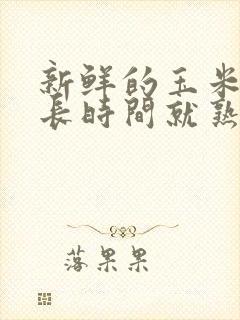 新鲜的玉米
長時間就熟
落果果